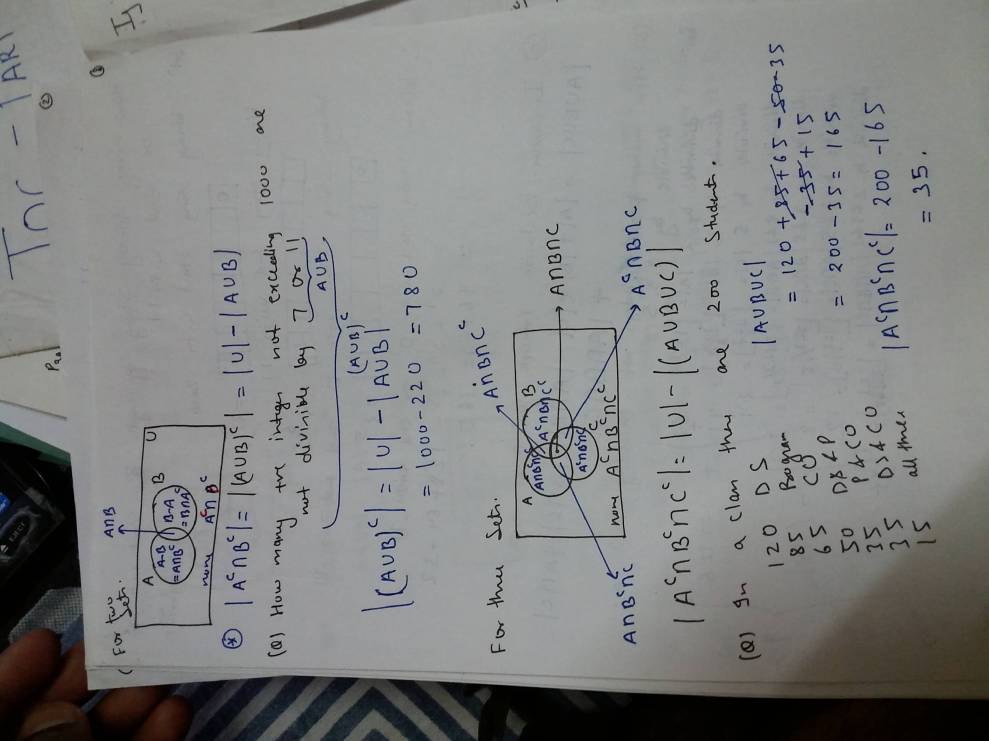 Inr - 1AR1
②
( For two
Sets.
A∩B
U
A
B
A-B
=A∩Bᶜ
B-A
=B∩Aᶜ
none
Aᶜ∩Bᶜ
⊛ |Aᶜ∩Bᶜ| = |(A∪B)ᶜ| = |U| - |A∪B|
(Q) How many +ve integers not exceeding 1000 are
not divisible by 7 or 11
A∪B
(A∪B)ᶜ
|(A∪B)ᶜ| = |U| - |A∪B|
= 1000-220 = 780
For three Sets.
A∩B∩Cᶜ
A
B
A∩Bᶜ∩Cᶜ
Aᶜ∩B∩Cᶜ
A∩B∩C
Aᶜ∩Bᶜ∩C
C
none
Aᶜ∩Bᶜ∩Cᶜ
A∩Bᶜ∩C
Aᶜ∩B∩C
|Aᶜ∩Bᶜ∩Cᶜ| = |U| - |(A∪B∪C)|
(Q) In a class there are 200 Students.
120 DS
85 Program
65 CO
50 DS & P
35 P & CO
35 DS & CO
15 all three
|A∪B∪C|
= 120 + 85+65 - 50-35
-35 + 15
= 200 - 35 = 165
|Aᶜ∩Bᶜ∩Cᶜ| = 200 - 165
= 35.
EJECT